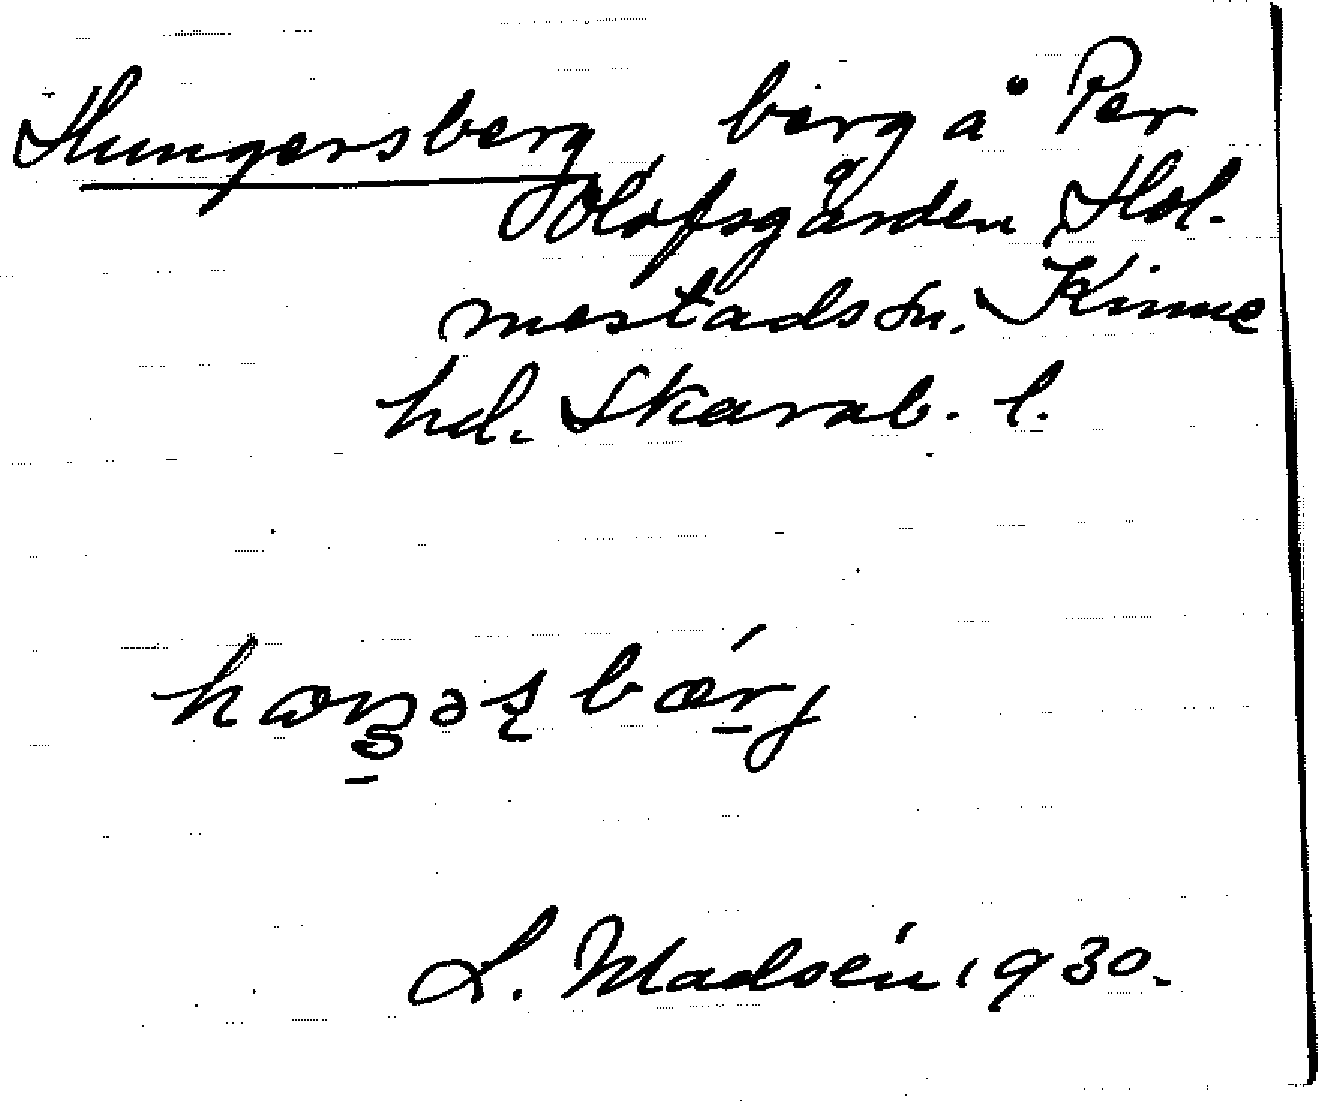 Hungersberg, berg å Per
Olofsgården, Hol-
mestads sn. Kinne
hd. Skarab. l.
L. Madsén 1930.